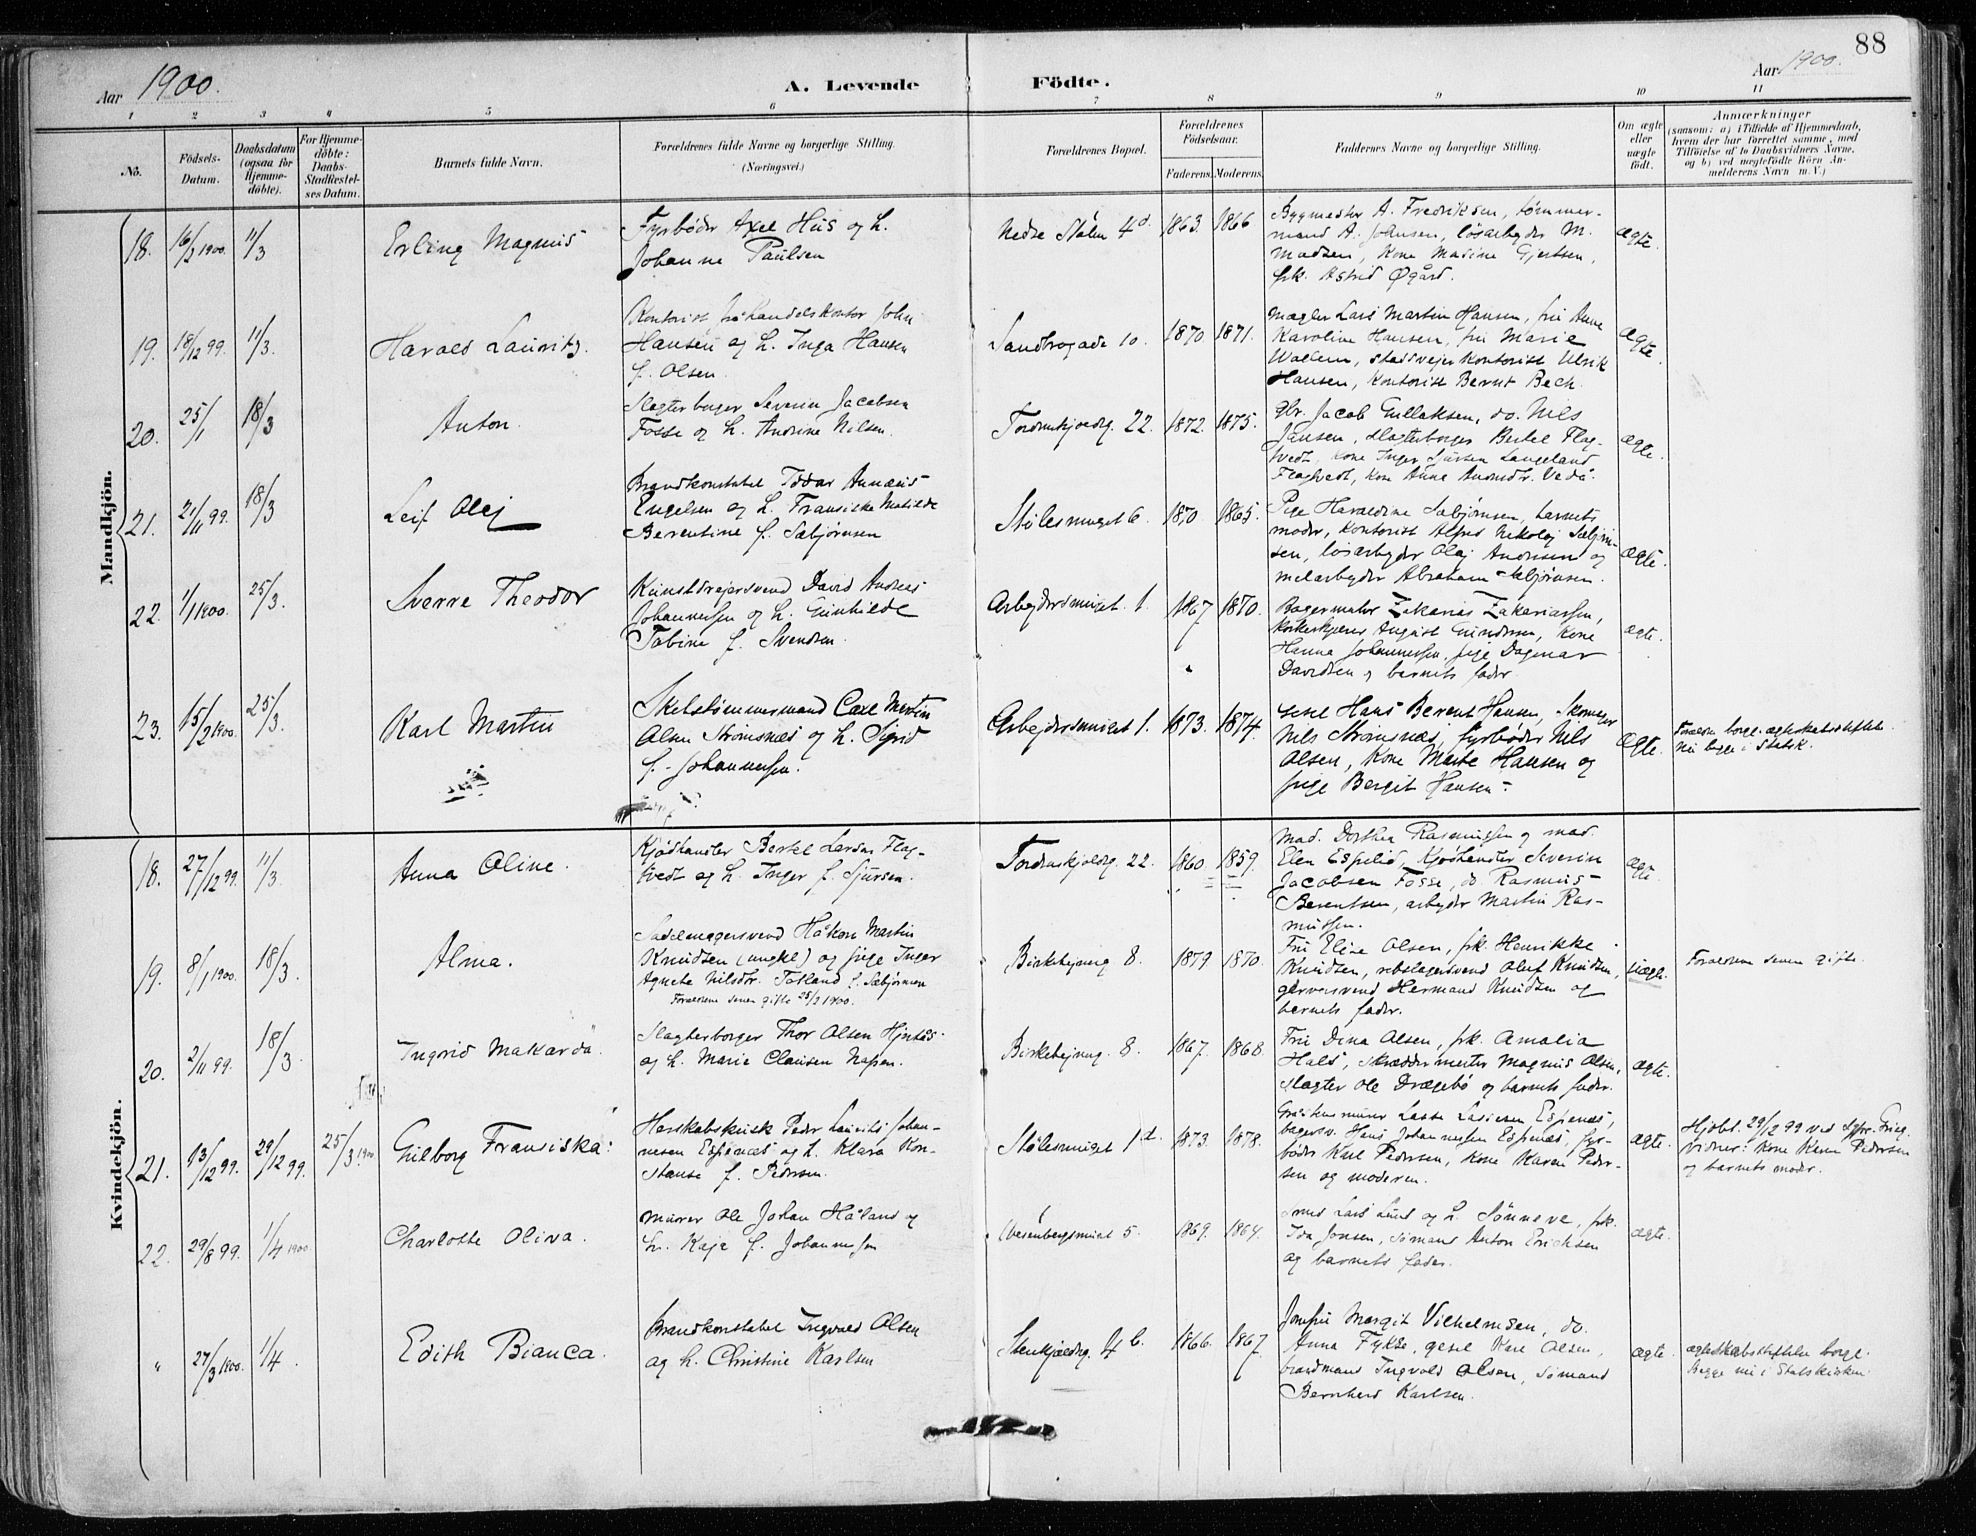 88
Aar 1900. A. Levende Födte. Aar 1900.
1 2 3 4 5 6 7 8 9 10 11
No. Födsels-Datum. Daabsdatum (ogsaa for Hjemmedöbte). For Hjemmedöbte: Daabs-Stadfæstelses Datum. Barnets fulde Navn. Forældrenes fulde Navne og borgerlige Stilling. (Næringsvei.) Forældrenes Bopæl. Forældrenes Födselsaar. Faderens. Moderens. Faddernes Navne og borgerlige Stilling. Om ægte eller uægte födt. Anmærkninger (saasom: a) i Tilfælde af Hjemmedaab, hvem der har forrettet samme, med Tilföielse af to Daabsvidners Navne, og b) ved uægtefödte Börn Anmelderens Navn m. V.)
Mandkjön.
18. 16/2 1900. 11/3 Erling Magnus
Fyrbøder Axel Hus og h.
Johanne Paulsen
Nedre Stølen 4d 1863. 1866
Bygmester A. Fredriksen, tømmer-
mand A. Johnsen, løsarbeyder M.
Madsen, Kone Masine Gjertsen,
frk. Astrid Øgård.
ægte.
19. 18/12 99. 11/3. Harald Lauritz.
Kontorist på handelskontor John
Hansen og h. Inga Hansen
f. Olsen.
Sandbrogade 10. 1870. 1871.
Mægler Lars Martin Hansen, fru Anne
Karoline Hansen, fru Marie
Wallem, kontorist Ulrik
Hansen, Kontorist Bernt Bech.
ægte.
20. 25/1 18/3 Anton.
Slagterborger Severin Jacobsen
Fosse og h. Andrine Nilsen.
Tordenskjoldsg. 22. 1872. 1875.
Gbr. Jacob Gullaksen, do. Nils
Jansen, slagterborger Bertel Flag-
tvedt, Kone Inger Sjursen Langeland
Flagtvedt, Kone Anna
ægte.
21. 21/11 99. 18/3 Leif Olej
Brandkonstabel Todar Annæus
Engelsen og h. Fransiska Matilde
Berentine f. Sæbjørnsen
Stølesmuget 6. 1870. 1865.
Pige Haraldine Sæbjørnsen, barnets
moder, Kontorist Alfred Nikolej Sæbjørn-
sen, løsarbeyder Olaj Andersen og
mølarbeyder Abraham Sæbjørnsen.
ægte.
22. 1/1 1900. 25/3. Sverre Theodor
Kunstdrejersvend David Andreas
Johannessen og h. Gunhilde
Tabine f. Svendsen.
Arbejdersmuget. 1. 1867 1870.
Bagermester Zakarias Zakariassen,
Korkeskjærer August Gundersen, Kone
Hanna Johannessen, pige Dagmar
Davidsen og barnets fader.
ægte.
23. 15/2 1900. 25/3. Karl Martin
Skibstømmermand Carl Martin
Olsen Strømsnæs og h. Sigrid
f. Johannessen.
Arbejdersmuget 1. 1873. 1874.
Gesel Hans Berent Hansen, Skomager
Nils Strømsnæs, fyrbøder Nils
Olsen, Kone Marte Hansen og
pige Bergit Hansen.
ægte.
Forældre borgl. ægteskabsstiftelse
nu begge i Statsk.
Kvindekjön.
18. 27/12 99. 11/3. Anna Oline.
Kjødhandler Bertel Larsen Flag-
tvedt og h. Inger f. Sjursen.
Tordenskjoldsg. 22. 1860. 1859.
Mad. Dorthea Rasmussen og mad.
Elen Espelid, Kjødhandler Severin
Jacobsen Fosse, do. Rasmus
Berentsen, arbeyder Martin Ras-
mussen.
ægte.
19. 8/1 1900. 18/3. Alma.
Sadelmagersvend Håkon Martin
Knudsen (ungkl) og pige Inger
Agnete Nilsdr. Tatland f. Sæbjørnsen
Forældrene senere gifte 25/2 1900.
Birkehejveg 8. 1879 1870.
Fru Eline Olsen, frk. Henrikke
Knudsen, rebslagersvend Oluf Knudsen,
garversvend Hermand Knudsen og
barnets fader.
uægte.
Forældrene senere gifte.
20. 2/11 99. 18/3. Ingrid Makarda.
Slagterborger Thor Olsen
og h. Marie Clausen Næssen.
Birkehejveg. 8. 1867. 1868.
Fru Dina Olsen, frk. Amalia
Hals, skræddermester Magnus Olsen,
slagter Ole Drægebø og barnets fader.
ægte.
21. 13/12 99. 29/12 99. 25/3 1900 Gulborg Fransiska.
Herskabskusk Peder Lauritz Johan-
nesen Espenæs og h. Klara Kon-
stanse f. Pedersen.
Stølesmuget 1d. 1873. 1878.
Lasse Larsen Espenæs,
bagersv. Hans Johannessen Espenæs, fyr-
bøder Karl Pedersen, Kone Karen Peder-
sen og moderen.
ægte.
Hjdøbt. 29/12 99 ved Spr. Grieg
vidner: Kone Karen Pedersen
og barnets moder.
22. 29/8 99. 1/4 1900 Charlotte Oliva.
Murer Ole Johan Håland og
h. Kaja f. Johannessen
Wesenbergsmuget 5. 1869. 1864.
Smed Lars Lund og h. Sønneve, frk.
Ida Jonsen, sømand Anton Ericksen
og barnets fader.
ægte.
" 27/3 1900. 1/4. Edith Bianca.
Brandkonstabel Ingvald Olsen
og h. Christine Karlsen
Stenkjældrg. 4 b. 1866. 1867
Jomfru Margit Vilhelmsen, do.
Anna Fykse, gesel Karl Olsen,
brandmand Ingvald Olsen, sømand
Bernhard Karlsen.
ægte.
Ægteskabsstiftelse borgl.
Begge nu i Statskirken